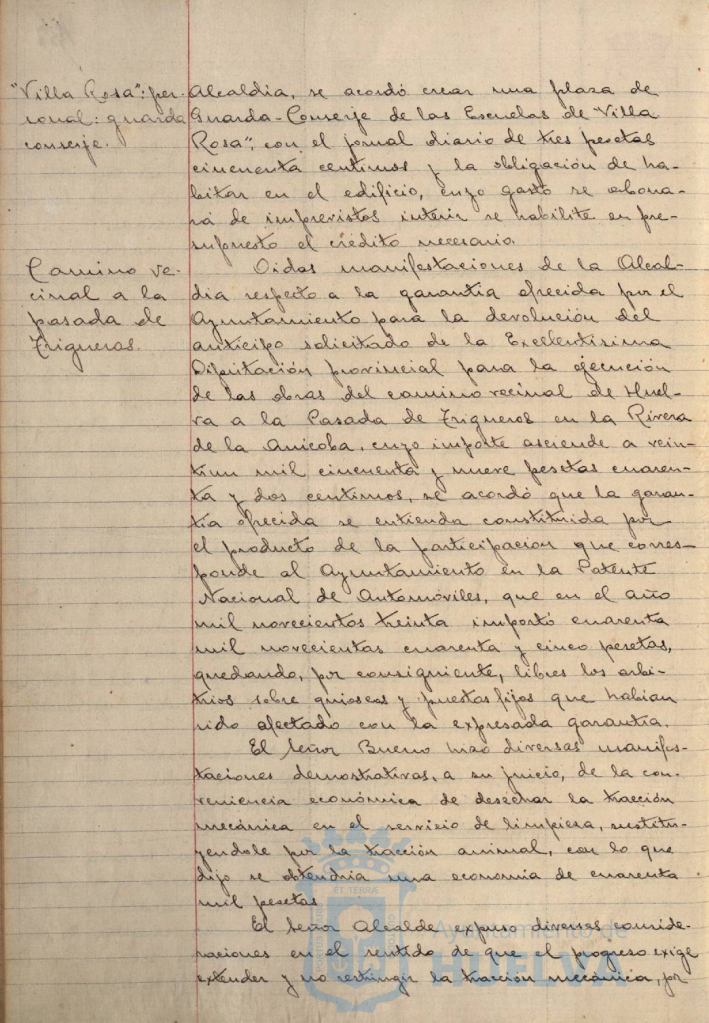 "Villa Rosa": per-
sonal: guarda
conserje.
Alcaldia, se acordó crear una plaza de
Guarda-Conserje de las Escuelas de "Villa
Rosa", con el jornal diario de tres pesetas
cincuenta centimos y la obligación de ha-
bitar en el edificio, cuyo gasto se abona-
rá de imprevistos interin se habilite en pre-
supuesto el crédito necesario.
Camino ve-
cinal a la
pasada de
Trigueros.
Oidas manifestaciones de la Alcal-
dia respecto a la garantia ofrecida por el
Ayuntamiento para la devolución del
anticipo solicitado de la Excelentisima
Diputación provincial para la ejecución
de las obras del camino vecinal de Huel-
va a la Pasada de Trigueros en la Rivera
de la Anicoba, cuyo importe asciende a vein-
tiun mil cincuenta y nueve pesetas cuaren-
ta y dos centimos, se acordó que la garan-
tia ofrecida se entienda constituida por
el producto de la participacion que corres-
ponde al Ayuntamiento en la Patente
Nacional de Automóviles, que en el año
mil novecientos treinta importó cuarenta
mil novecientas cuarenta y cinco pesetas,
quedando, por consiguiente, libres los arbi-
trios sobre quioscos y puestos fijos que habian
sido afectado con la expresada garantia.
El Señor Bueno hizo diversas manifes-
taciones demostrativas, a su juicio, de la con-
veniencia económica de desechar la tracción
mecánica en el servicio de limpieza, sustitu-
yendole por la tracción animal, con lo que
dijo se obtendria una economia de cuarenta
mil pesetas
El Señor Alcalde expuso diversas conside-
raciones en el sentido de que el progreso exige
extender y no restringir la tracción mecánica, por
Ayuntamiento de
HUELVA